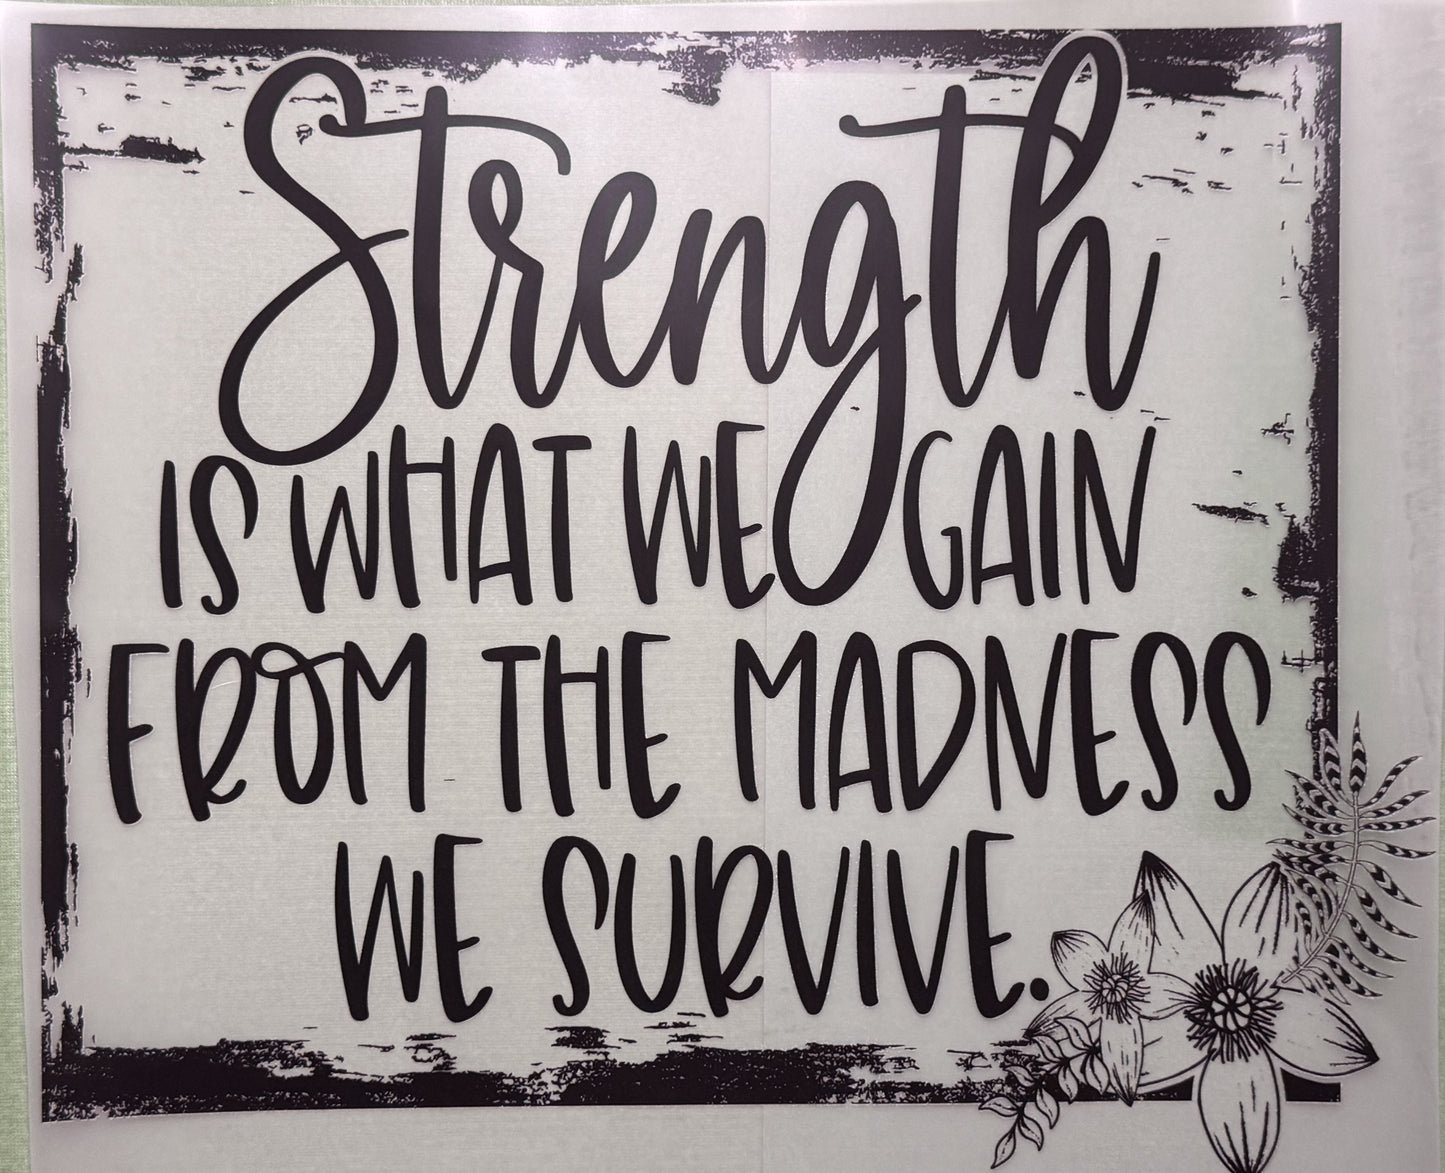 Strength
IS WHAT WE GAIN
FROM THE MADNESS
WE SURVIVE.